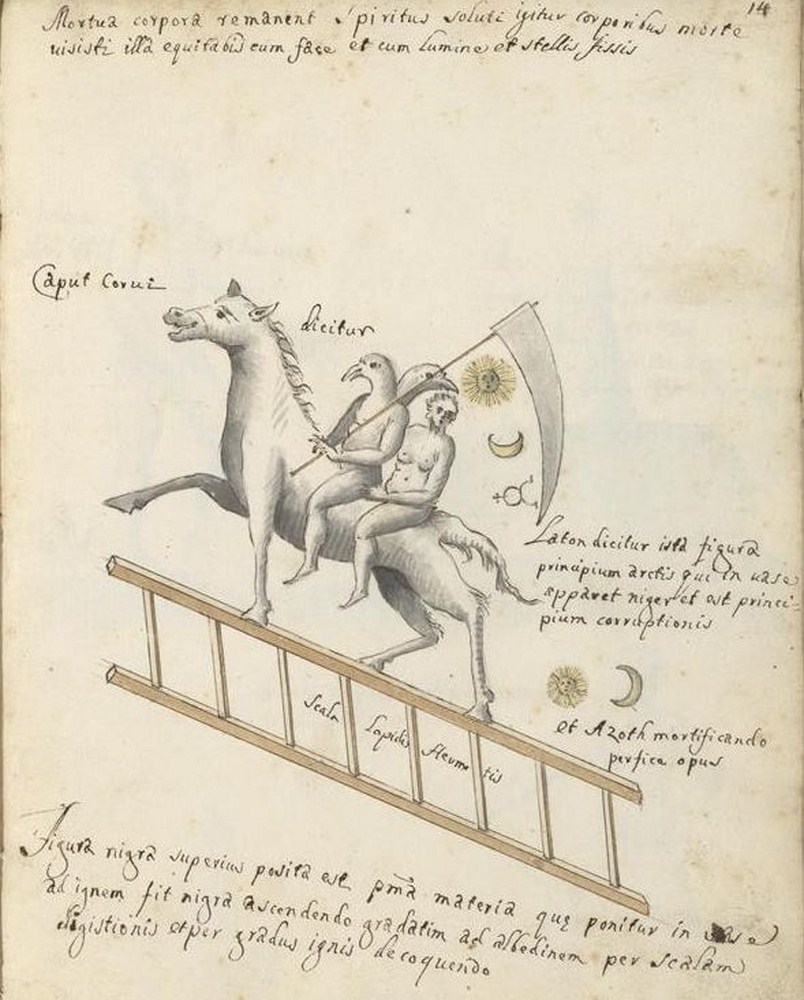 14
Mortua corpora remanent Spiritus soluti igitur corporibus morte
uisisti illa equitabis cum face et cum Lumine et stellis fissis
Caput Corui
dicitur
Laton dicitur ista figura
principium artis qui in uase
apparet niger et est princi-
pium corruptionis
et Azoth mortificando
perfice opus
Scala Lapidis fleumatis
Figura nigra superius posita est pma materia que ponitur in uase
ad ignem fit nigra ascendendo gradatim ad albedinem per scalam
digistionis et per gradus ignis decoquendo